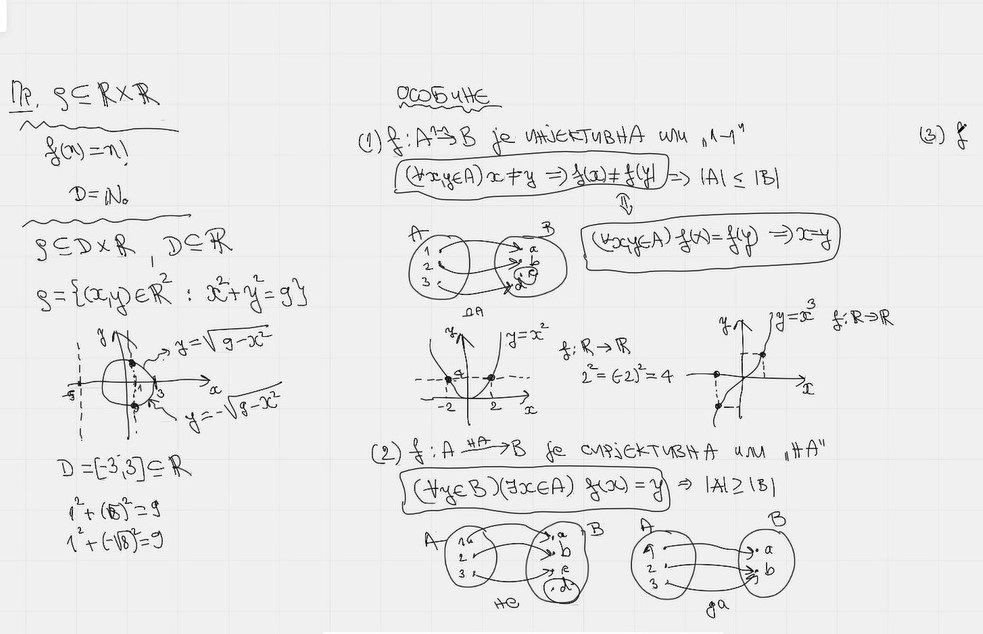 Пр. ρ ⊆ ℝ×ℝ
f(n) = n!
D = ℕ₀
ρ ⊆ D×ℝ, D ⊆ ℝ
ρ = {(x,y) ∈ ℝ² : x² + y² = 9}
y
y = √(9-x²)
-5 1 3 x
y = -√(9-x²)
D = [-3,3] ⊆ ℝ
1² + (√8)² = 9
1² + (-√8)² = 9
ОСОБИНЕ
(1) f: A →(1-1) B је ИНЈЕКТИВНА или „1-1"
(∀x,y∈A) x ≠ y ⇒ f(x) ≠ f(y) ⇒ |A| ≤ |B|
⇕
(∀x,y∈A) f(x) = f(y) ⇒ x = y
A B
1 a
2 b
3 c
d
ДА
y y = x² f: ℝ → ℝ
4 2² = (-2)² = 4
-2 2 x
y y = x³ f: ℝ → ℝ
x
(2) f: A →(НА) B је СУРЈЕКТИВНА или „НА"
(∀y∈B)(∃x∈A) f(x) = y ⇒ |A| ≥ |B|
A B
1 a
2 b
3 c
d
не
A B
1 a
2 b
3
да
(3) f